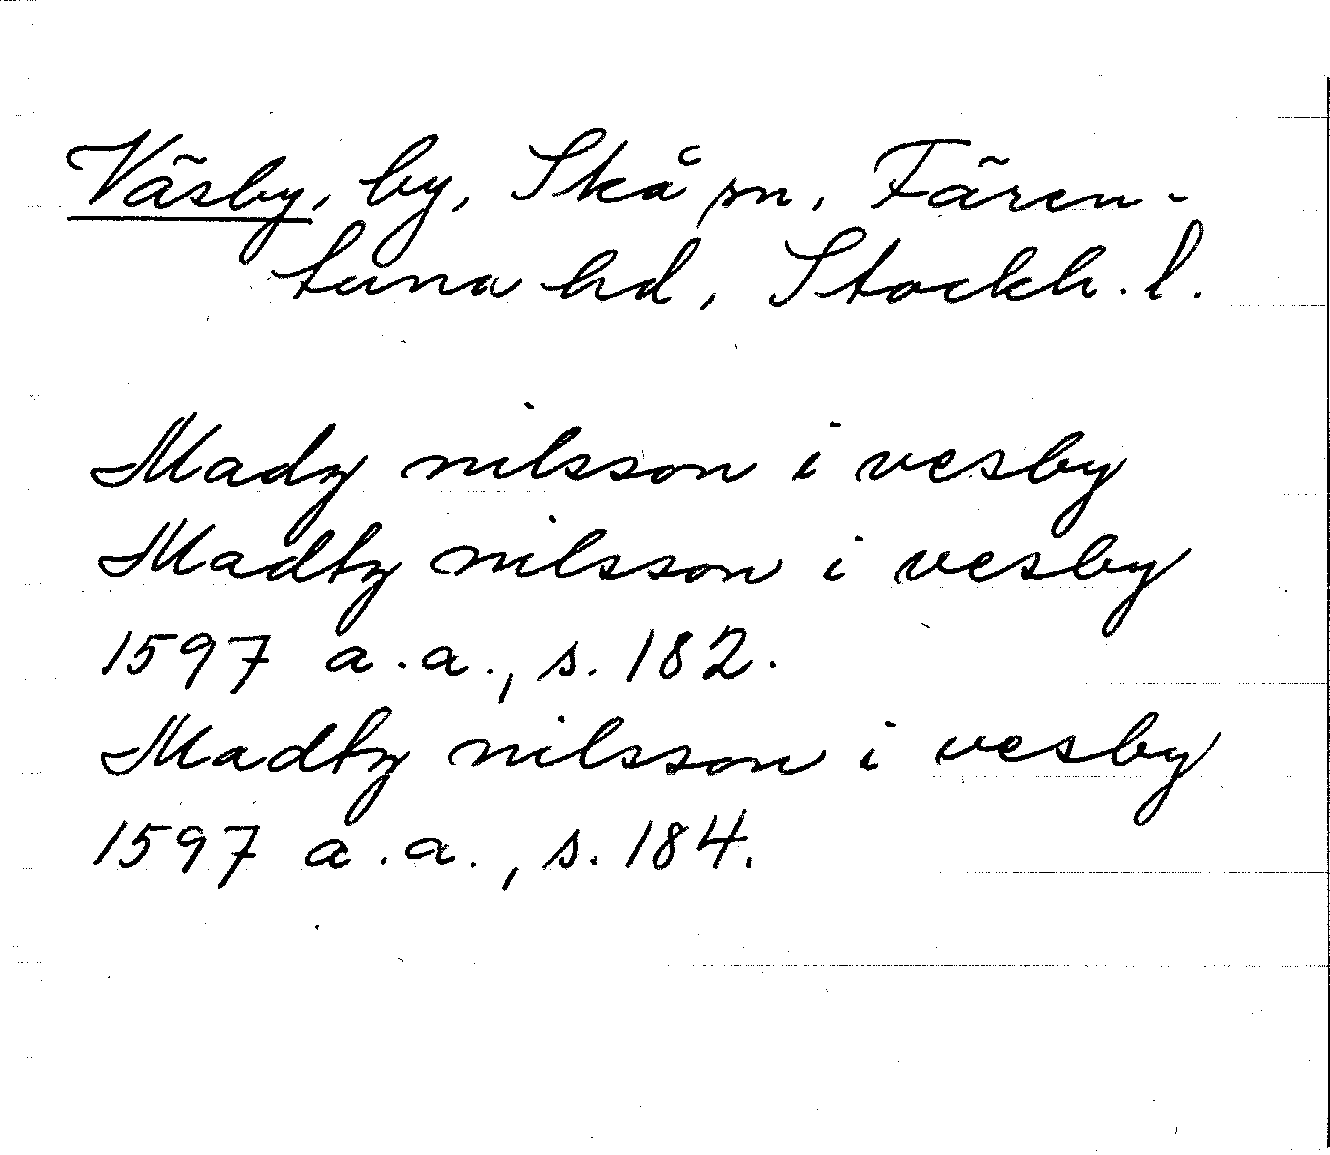 Väsby, by, Skå sn, Fären-
tuna hd, Stockh. l.
Madz nilsson i vesby
Madtz nilsson i vesby
1597 a.a., s. 182.
Madtz nilsson i vesby
1597 a.a., s. 184.